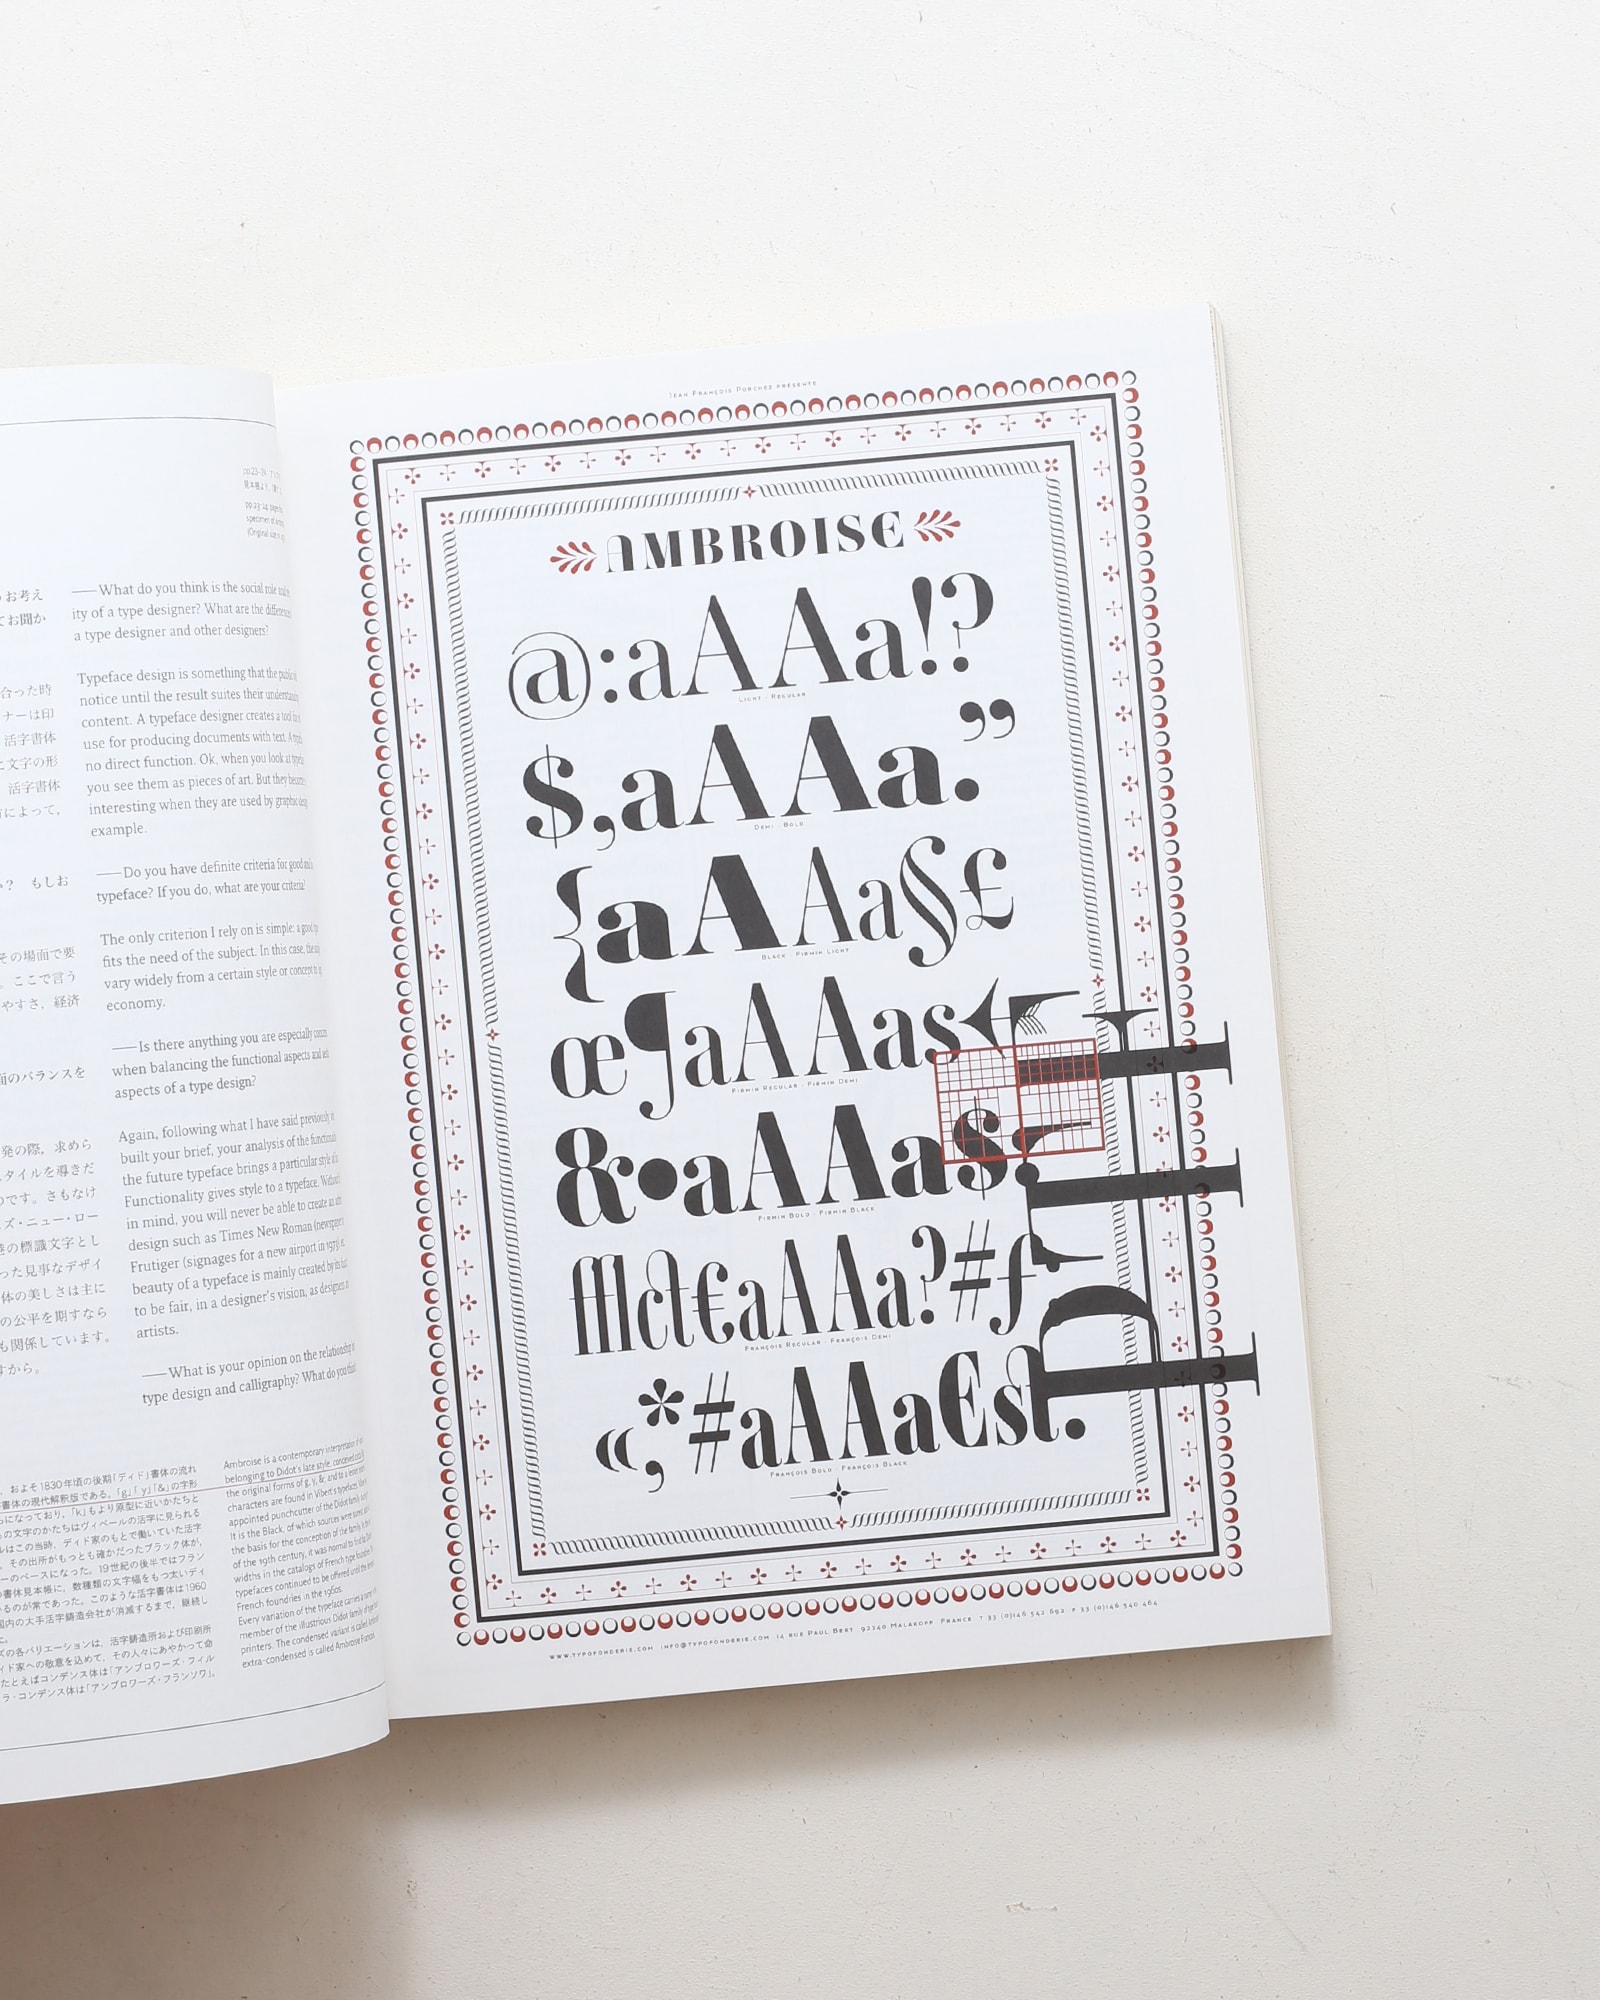 pp.23-24
見本帳より
pp.23-24
specimen of
(Original size
お考え
てお聞か
合った時
ナーは印
活字書体
に文字の形
活字書体
によって，
か？　もしお
その場面で要
。ここで言う
やすさ，経済
面のバランスを
発の際，求めら
スタイルを導きだ
のです。さもなけ
ズ・ニュー・ロー
港の標識文字とし
った見事なデザイ
体の美しさは主に
の公平を期すなら
も関係しています。
すから。
——What do you think is the social role
ity of a type designer? What are the differences
a type designer and other designers?
Typeface design is something that the public
notice until the result suites their understanding
content. A typeface designer creates a tool
use for producing documents with text. A
no direct function. Ok, when you look at
you see them as pieces of art. But they become
interesting when they are used by graphic
example.
——Do you have definite criteria for good
typeface? If you do, what are your criteria?
The only criterion I rely on is simple: a good
fits the need of the subject. In this case, the
vary widely from a certain style or concept to
economy.
——Is there anything you are especially
when balancing the functional aspects and
aspects of a type design?
Again, following what I have said previously
built your brief, your analysis of the
the future typeface brings a particular style
Functionality gives style to a typeface. Without
in mind, you will never be able to create an
design such as Times New Roman (newspaper
Frutiger (signages for a new airport in 1975)
beauty of a typeface is mainly created by its
to be fair, in a designer's vision, as designers
artists.
——What is your opinion on the relationship
type design and calligraphy? What do you think
，およそ1830年頃の後期「ディド」書体の流れ
書体の現代解釈版である。「g」「y」「&」の字形
になっており，「k」もより原型に近いかたちと
の文字のかたちはヴィベールの活字に見られる
ルはこの当時，ディド家のもとで働いていた活字
，その出所がもっとも確かだったブラック体が，
ーのベースになった。19世紀の後半ではフラン
の書体見本帳に，数種類の文字幅をもつ太いディ
いるのが常であった。このような活字書体は1960
国内の大手活字鋳造会社が消滅するまで，継続し
た。
ズの各バリエーションは，活字鋳造所および印刷所
ィド家への敬意を込めて，その人々にあやかって命
たとえばコンデンス体は「アンブロワーズ・フィル
ラ・コンデンス体は「アンブロワーズ・フランソワ」。
Ambroise is a contemporary interpretation of
belonging to Didot's late style, conceived
the original forms of g, y, &, and to a lesser
characters are found in Vibert's typefaces.
appointed punchcutter of the Didot family
It is the Black, of which sources were
the basis for the conception of the family.
of the 19th century, it was normal to find
widths in the catalogs of French type foundries.
typefaces continued to be offered until the
French foundries in the 1960s.
Every variation of the typeface carries a name
member of the illustrious Didot family of type
printers. The condensed variant is called Ambroise
extra-condensed is called Ambroise François.
Jean François Porchez présente
AMBROISE
@:aAAa!?
Light - Regular
$,aAAa.”
Demi - Bold
{aAAa§£
Black - Firmin Light
œ¶aAAas
Firmin Regular - Firmin Demi
&•aAAa$
Firmin Bold - Firmin Black
ctєaAAa?#ƒ
François Regular - François Demi
«*,#aAAaEst.
François Bold - François Black
PTF
www.typofonderie.com info@typofonderie.com 14 rue Paul Bert 92240 Malakoff France T 33 (0)146 542 692 F 33 (0)146 540 464